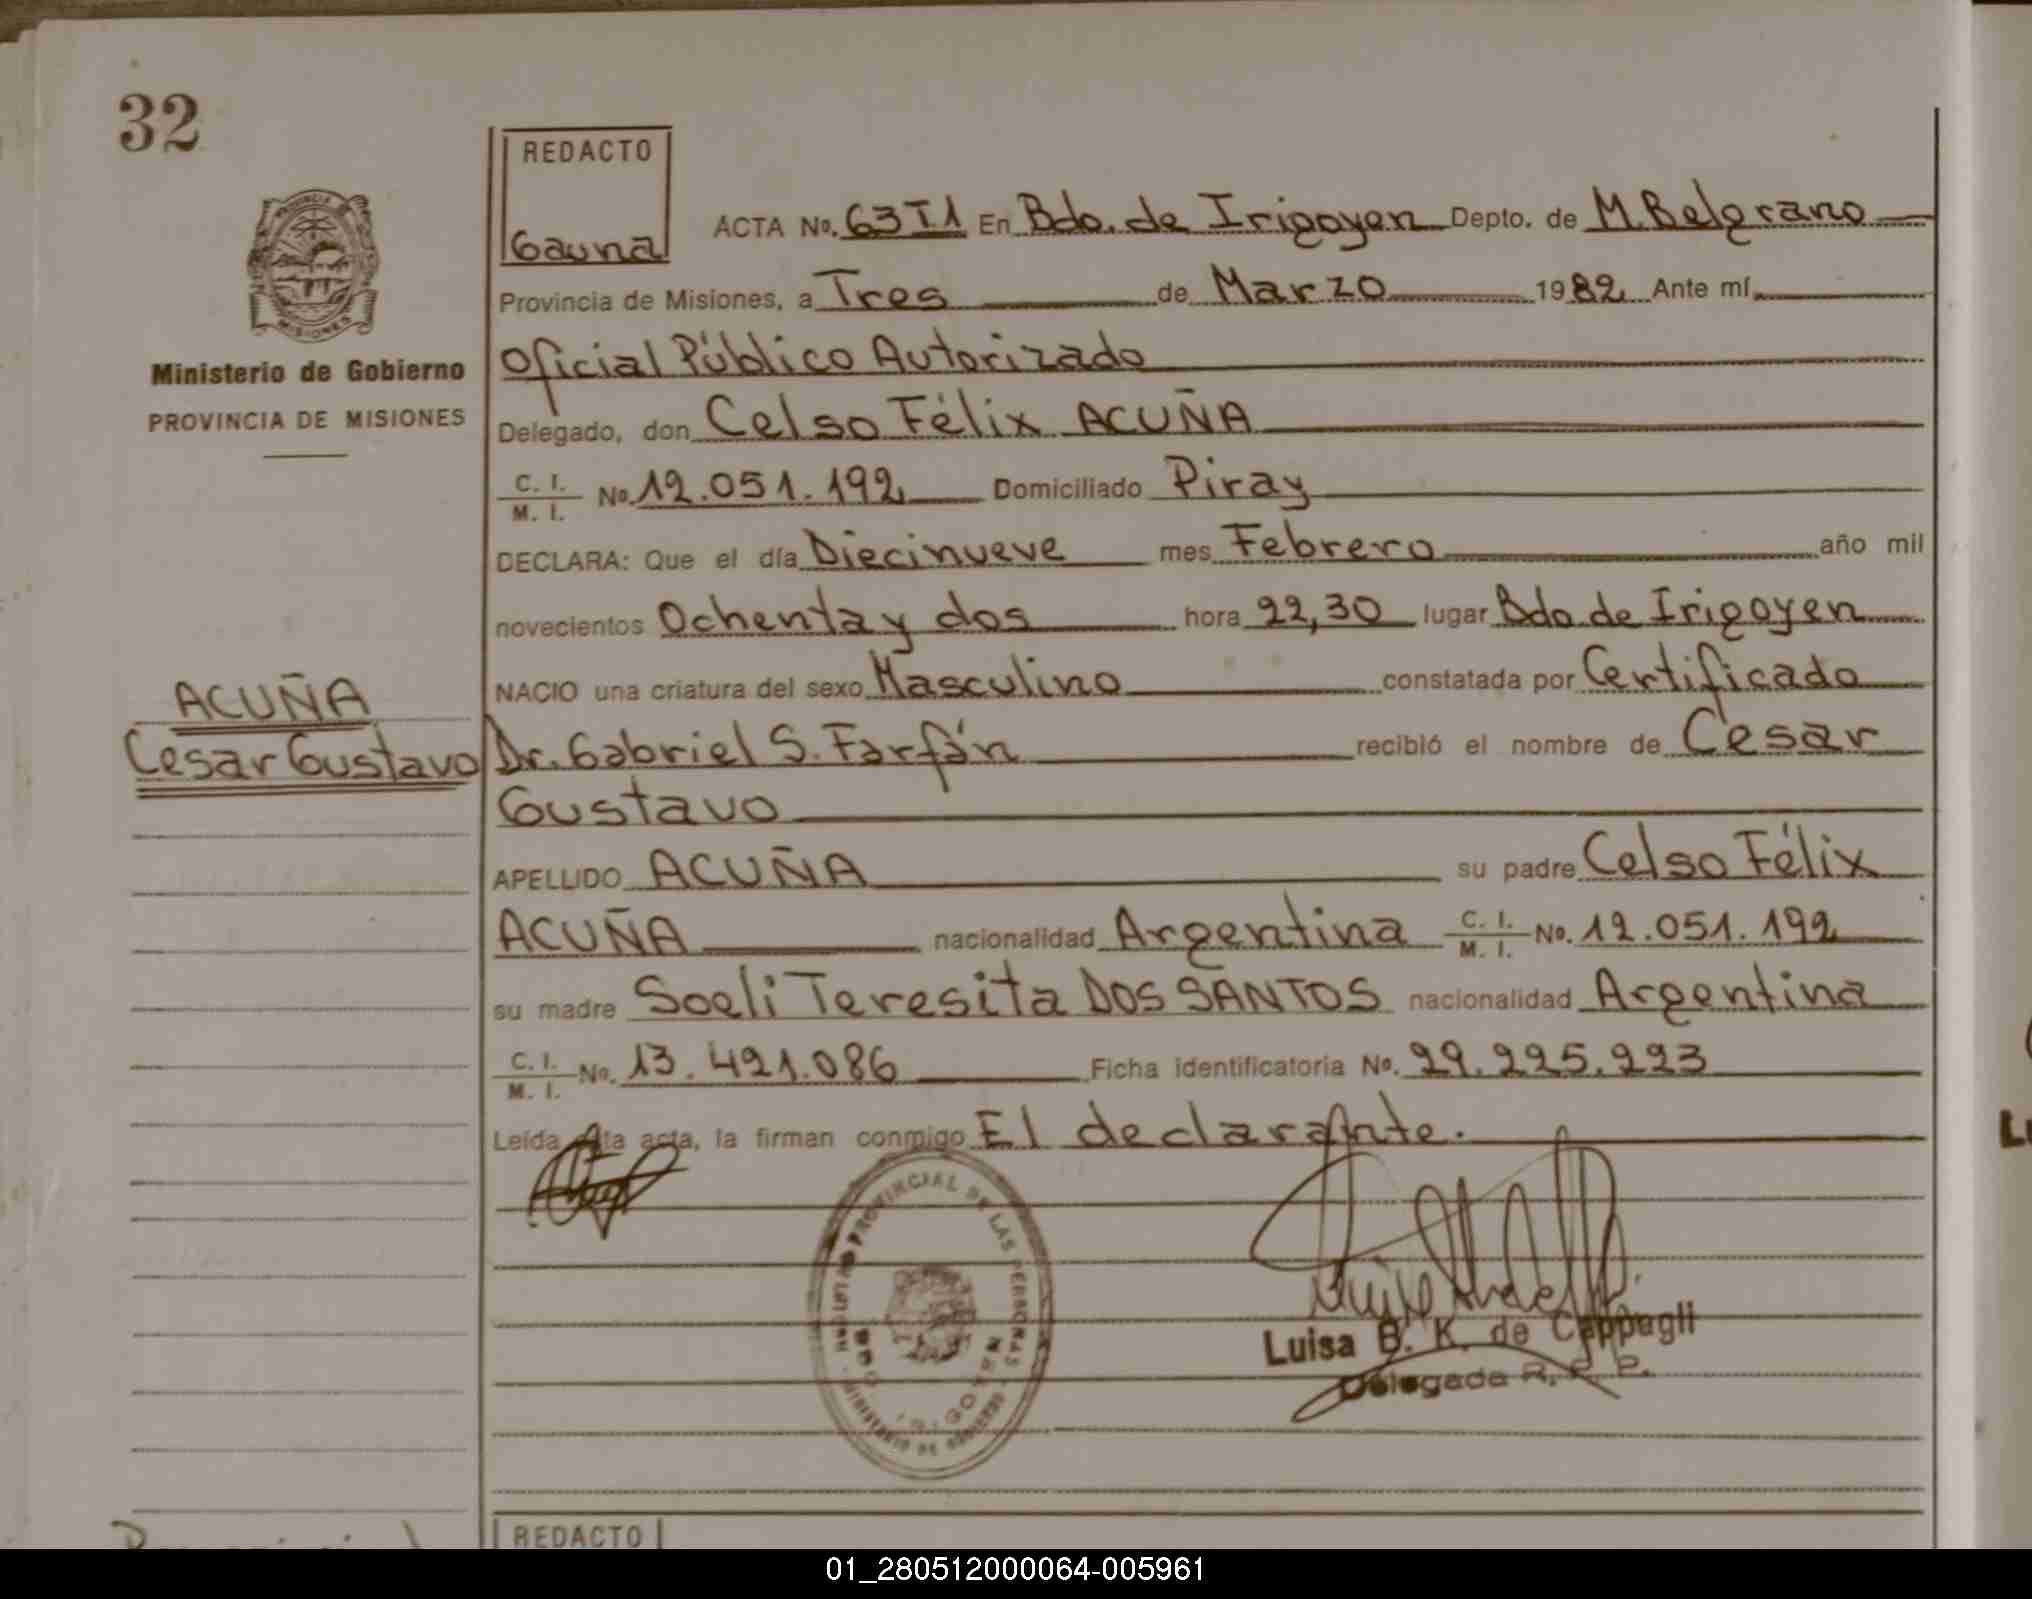 32
REDACTO
Gauna
ACTA No. 63 T.1 En Bdo. de Irigoyen Depto. de M. Belgrano
Provincia de Misiones, a Tres de Marzo 1982 Ante mí
Oficial Público Autorizado
Delegado, don Celso Félix ACUÑA
C. I. / M. I. No. 12.051.192 Domiciliado Piray
DECLARA: Que el día Diecinueve mes Febrero año mil
novecientos Ochenta y dos hora 22,30 lugar Bdo. de Irigoyen
NACIO una criatura del sexo Masculino constatada por Certificado
Dr. Gabriel S. Farfán recibió el nombre de Cesar
Gustavo
APELLIDO ACUÑA su padre Celso Félix
ACUÑA nacionalidad Argentina C. I. / M. I. No. 12.051.192
su madre Soeli Teresita DOS SANTOS nacionalidad Argentina
C. I. / M. I. No. 13.421.086 Ficha identificatoria No. 29.225.223
Leída esta acta, la firman conmigo El declarante.
PROVINCIA DE
MISIONES
Ministerio de Gobierno
PROVINCIA DE MISIONES
ACUÑA
Cesar Gustavo
PROVINCIAL DE LAS PERSONAS
MINISTERIO DE GOBIERNO
IRIGOYEN
Luisa B. K. de Cappagli
Delegada R. P. P.
REDACTO
01_280512000064-005961